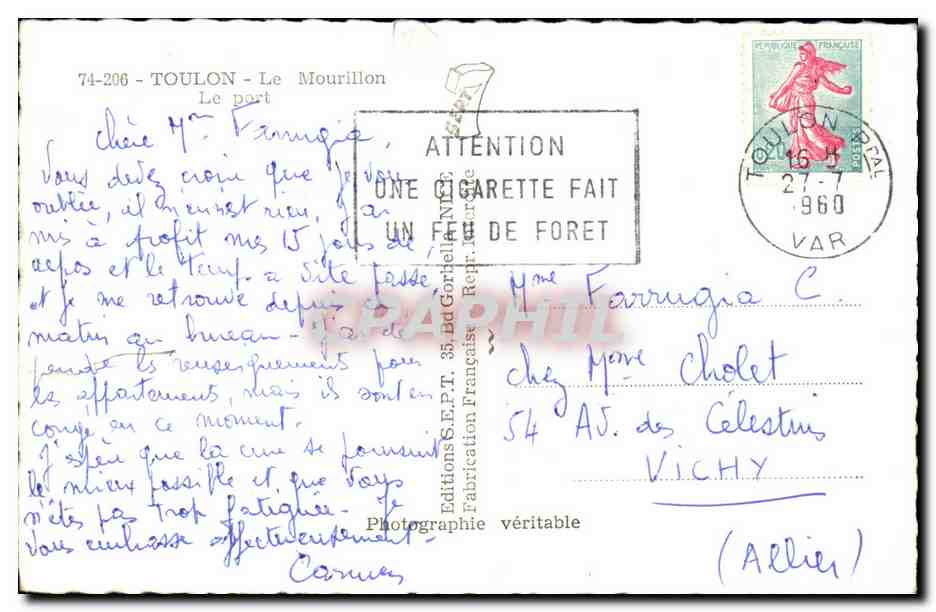 74-206 - TOULON - Le Mourillon
Le port
Chère Mme Farrugia,
Vous devez croire que je vous
oublie, il n'en est rien, j'ai
mis à profit mes 15 jours de
repos et le temps a vite passé,
et je me retrouve depuis ce
matin au bureau - J'ai de
mandé les renseignements pour
les appartements, mais ils sont en
congé en ce moment.
J'espère que la cure se poursuit
le mieux possible et que vous
n'êtes pas trop fatiguée - Je
vous embrasse affectueusement -
Carmen
SEPT
Editions S.E.P.T. 35, Bd Gorbella NICE
Fabrication Française Repr. Interdite
Photographie véritable
ATTENTION
UNE CIGARETTE FAIT
UN FEU DE FORET
REPUBLIQUE FRANÇAISE
POSTES
TOULON PPAL
16 H
27-7
1960
VAR
CPAPHIL
Mme Farrugia C.
chez Mme Cholet
54 AV. des Célestins
VICHY
(Allier)